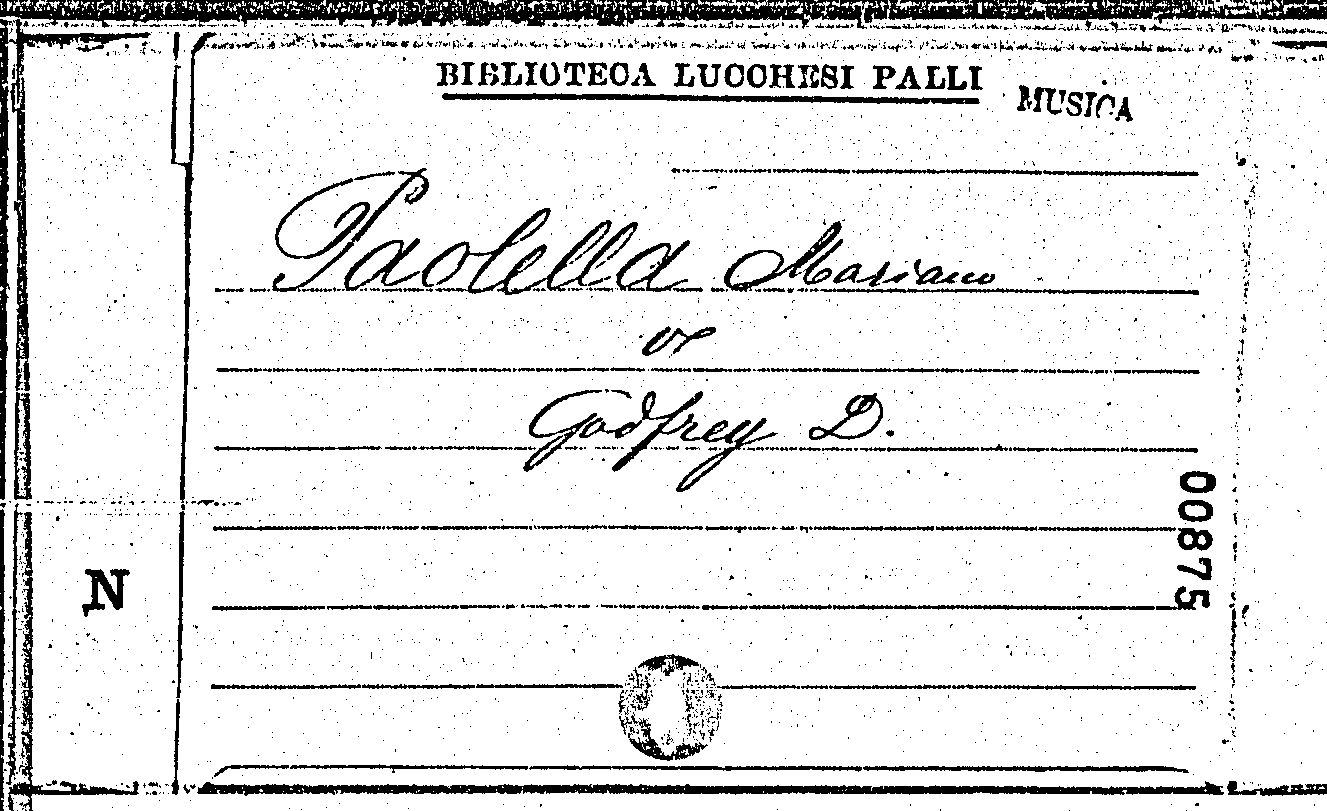 BIBLIOTECA LUCCHESI PALLI
MUSICA
Paolella Mariano
v
Godfrey D.
00875
N